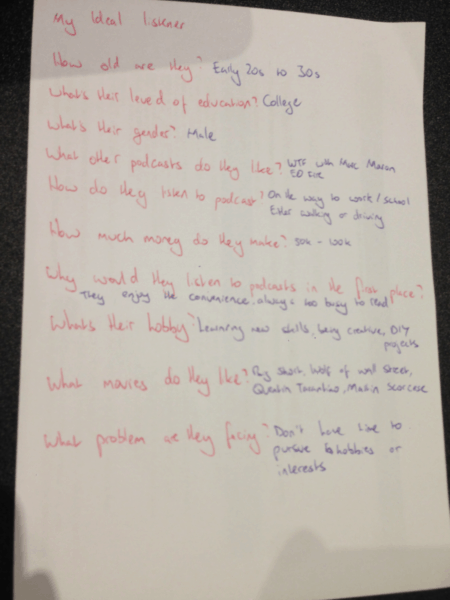 My Ideal listener
How old are they? Early 20s to 30s
What's their level of education? College
What's their gender? Male
What other podcasts do they like? WTF with Marc Maron
EO Fire
How do they listen to podcast? On the way to work / school
Either walking or driving
How much money do they make? 50k - 100k
Why would they listen to podcasts in the first place?
They enjoy the convenience, always too busy to read
What's their hobby? Learning new skills, being creative, DIY
projects
What movies do they like? Big Short, Wolf of wall street,
Quentin Tarantino, Martin Scorcese
What problem are they facing? Don't have time to
pursue hobbies or
interests